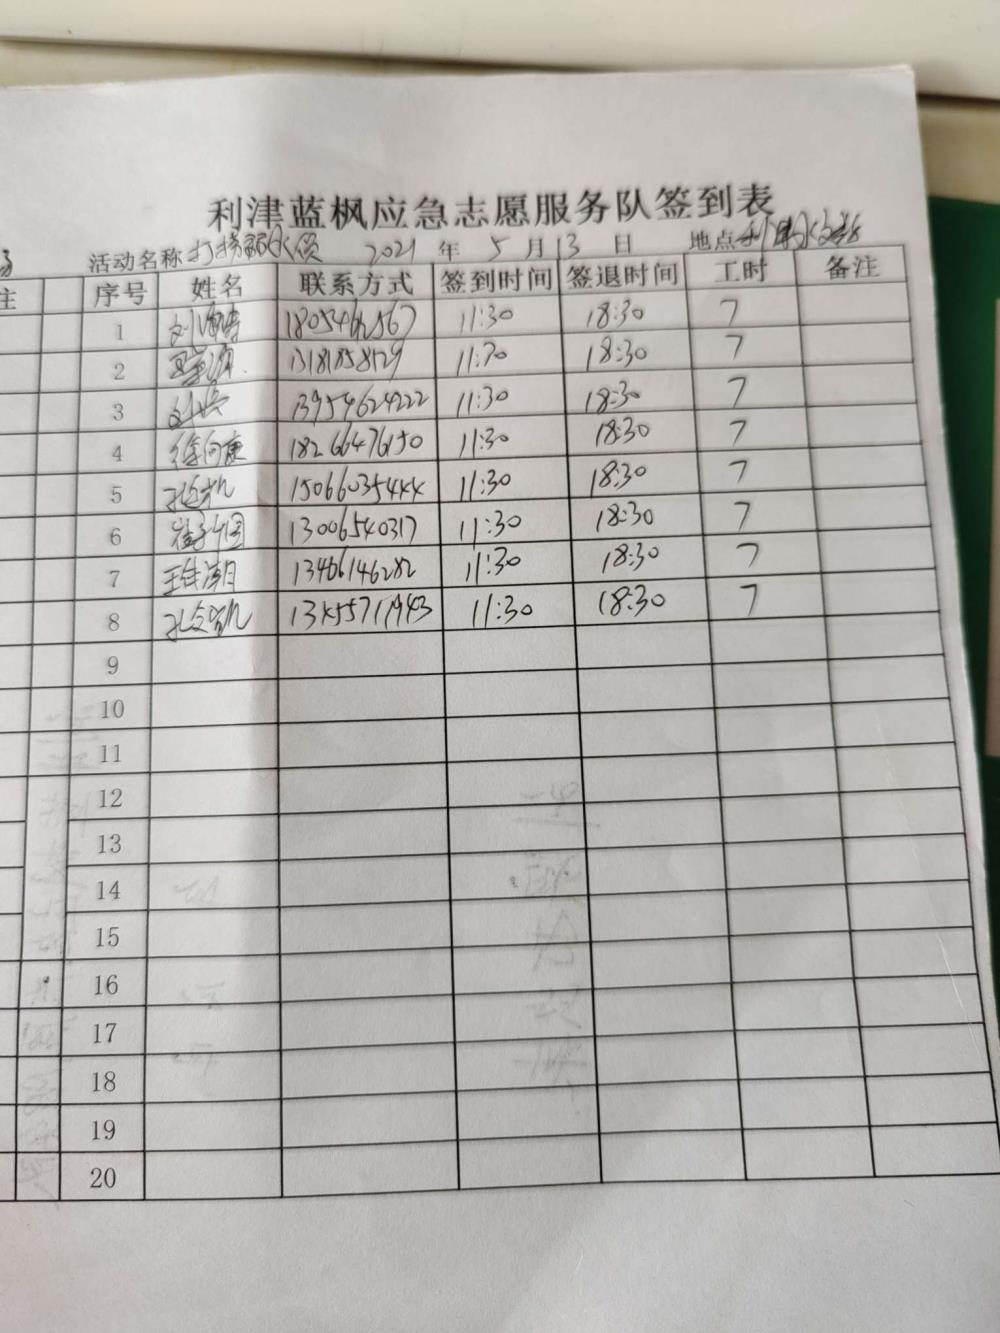 利津蓝枫应急志愿服务队签到表
活动名称 打捞溺水人员 2021 年 5 月 13 日 地点
注 序号 姓名 联系方式 签到时间 签退时间 工时 备注
1 18054662567 11:30 18:30 7
2 13181858129 11:30 18:30 7
3 13954624222 11:30 18:30 7
4 徐向康 18266476150 11:30 18:30 7
5 15066035444 11:30 18:30 7
6 13006540317 11:30 18:30 7
7 13466146282 11:30 18:30 7
8 13455711943 11:30 18:30 7
9
10
11
12
13
14
15
16
17
18
19
20